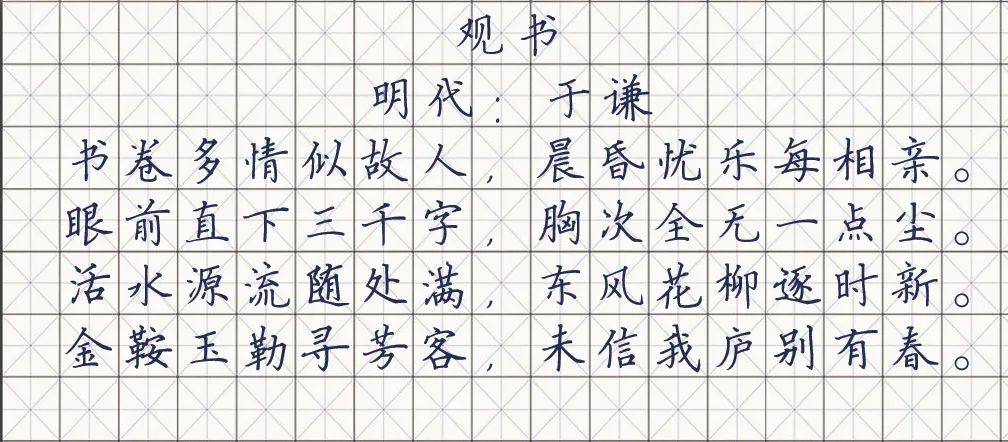 观书
明代：于谦
书卷多情似故人，晨昏忧乐每相亲。
眼前直下三千字，胸次全无一点尘。
活水源流随处满，东风花柳逐时新。
金鞍玉勒寻芳客，未信我庐别有春。